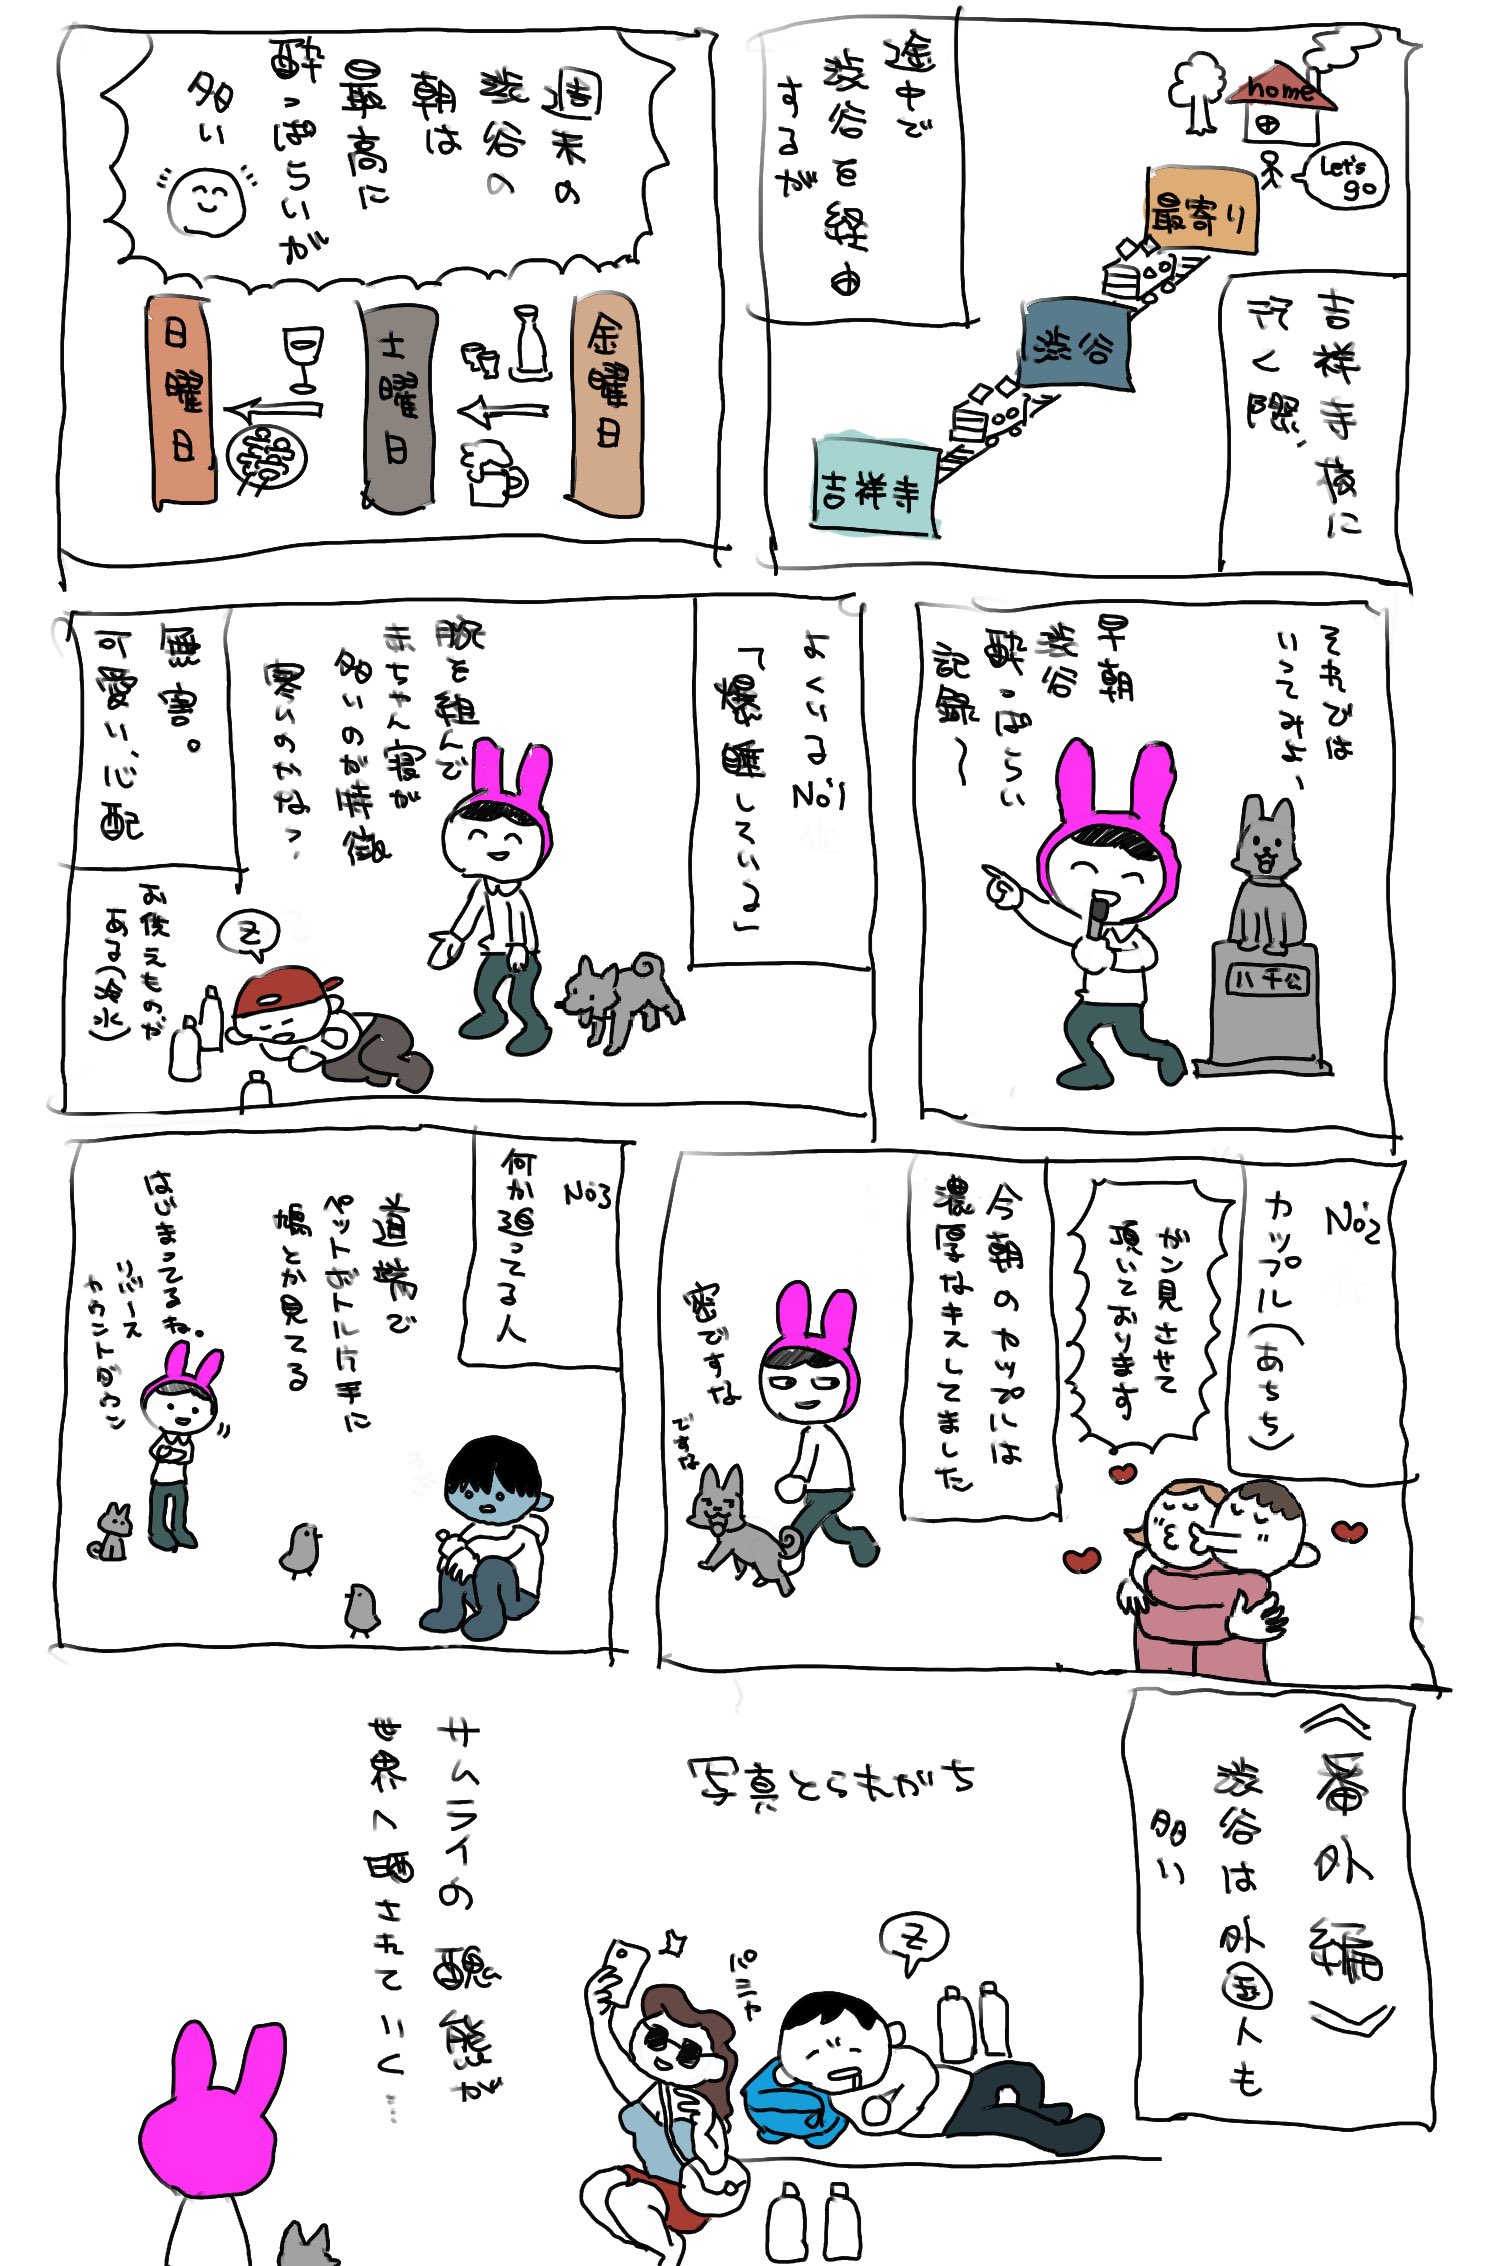 home
Let's
go
最寄り
渋谷
吉祥寺
吉祥寺夜に
行く際、
途中で
渋谷を経由
するが
週末の
渋谷の
朝は
最高に
酔っぱらいが
多い
金曜日
土曜日
日曜日
それでは
いってみよ、
早朝
渋谷
酔っぱらい
記録〜
八千公
よくいるNo1
「爆睡している」
腕を組んで
赤ちゃん寝が
多いのが特徴
寒いのかな?
無害。
可愛い、心配
お供えものが
ある(冷水)
Z
No2
カップル(あちち)
ガン見させて
頂いております
今朝のカップルには
濃厚なキスしてました
密ですな
ですな
No3
何か追ってる人
道端で
ペットボトル片手に
鳩とか見てる
はじまってるね。
リバース
カウントダウン
《番外編》
渋谷は外国人も
多い
写真とられがち
Z
パシャ
サムライの醜態が
世界へ晒されていく…